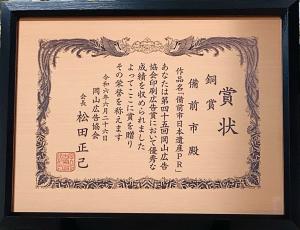 賞状
銅賞
備前市殿
作品名「備前市日本遺産PR」
あなたは第四十五回岡山広告
協会印刷広告賞において優秀な
成績を収められました
よってここに賞を贈り
その栄誉を称えます
令和六年六月二十六日
岡山広告協会
会長 松田正己